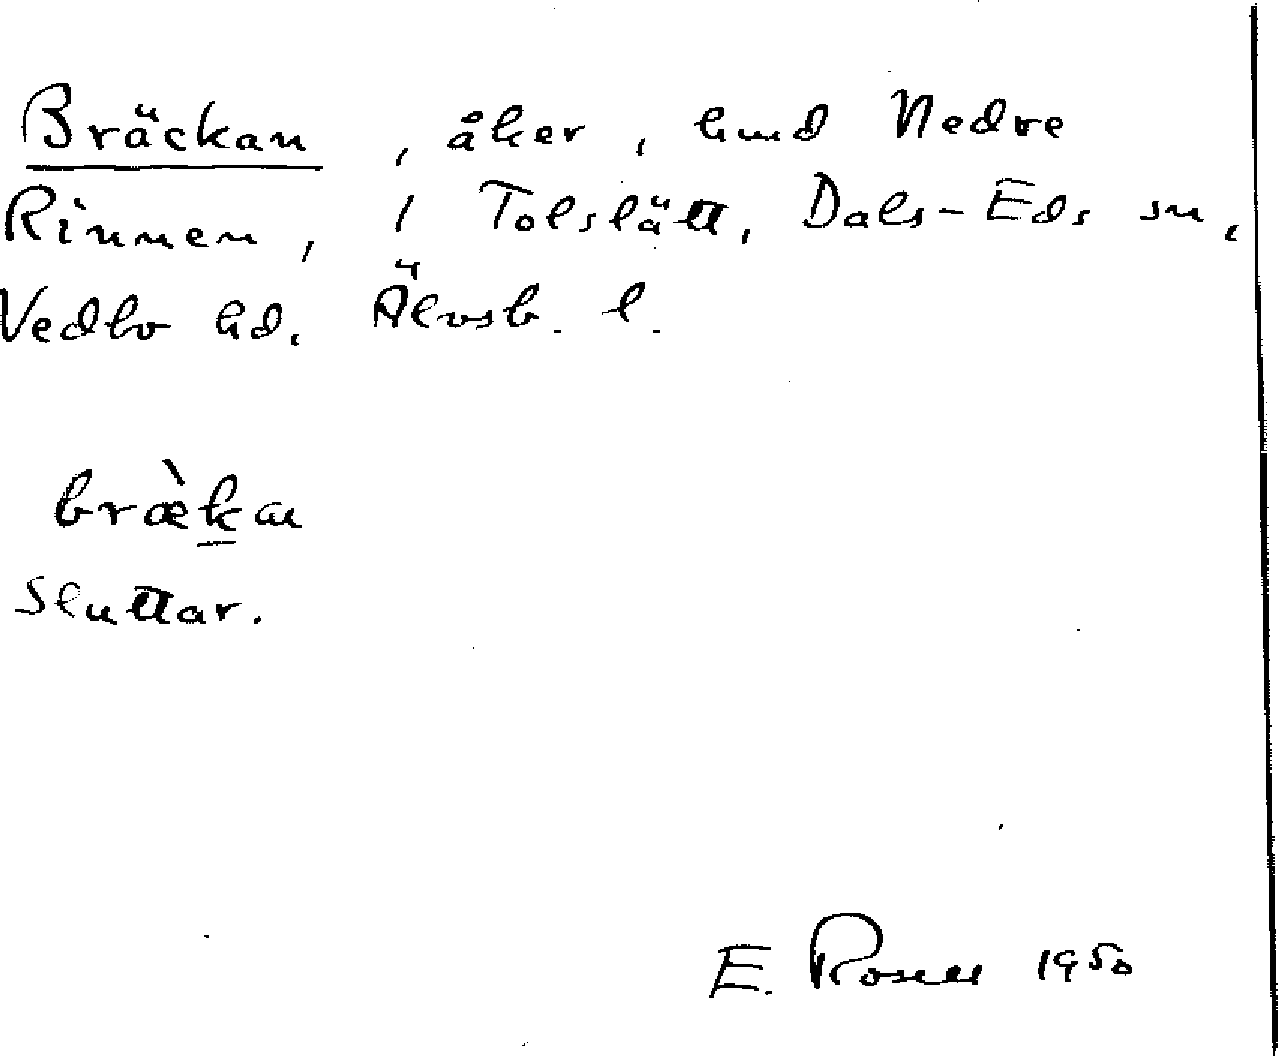 Bräckan, åker, hmd Nedre
Rinnen, 1 Tolslätt, Dals-Eds sn,
Vedbo hd. Älvsb. l.
bræ̀kan
Sluttar.
E. Rosell 1950